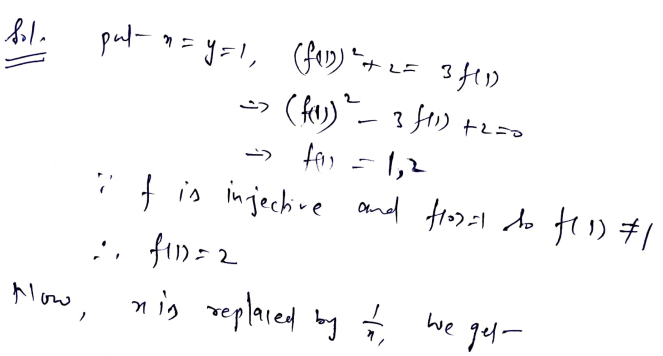 Sol. put x = y = 1, (f(1))² + 2 = 3 f(1)
⇒ (f(1))² - 3 f(1) + 2 = 0
⇒ f(1) = 1, 2
∵ f is injective and f(0) = 1 so f(1) ≠ 1
∴ f(1) = 2
Now, x is replaced by 1/x, we get